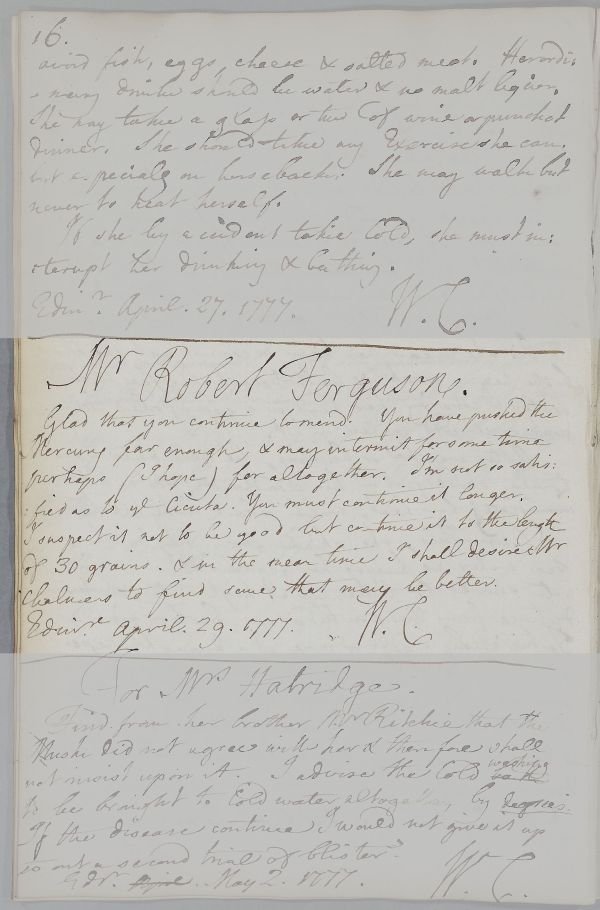 16.
avoid fish, eggs, cheese & salted meat. Her ordi:
:nary drink should be water & no malt liquor.
She may take a glass or two of wine or punch at
dinner. She should take any Exercise she can,
but especialy on horseback. She may walk but
never to heat herself.
If she by accident takes Cold, she must in:
:terupt her drinking & bathing.
Edinr. April. 27. 1777. W. C.
Mr Robert Ferguson.
Glad that you continue to mend. You have pushed the
Mercury far enough, & may intermit for some time
perhaps (I hope) for altogether. I'm not so satis:
:fied as to ye Cicuta. You must continue it longer.
I suspect it not to be good but continue it to the length
of 30 grains. & in the mean time I shall desire Mr
Chalmers to find some that may be better.
Edinr. April. 29. 1777. W. C.
For Mrs Hatridge.
Find from her brother Mr Ritchie that the
Musk did not agree with her & therefore shall
not insist upon it. I advise the Cold washing
to be brought to Cold water, altogether, by degrees.
If the disease continue I would not give it up
without a second trial of blister.
Edr. April May 2. 1777. W. C.